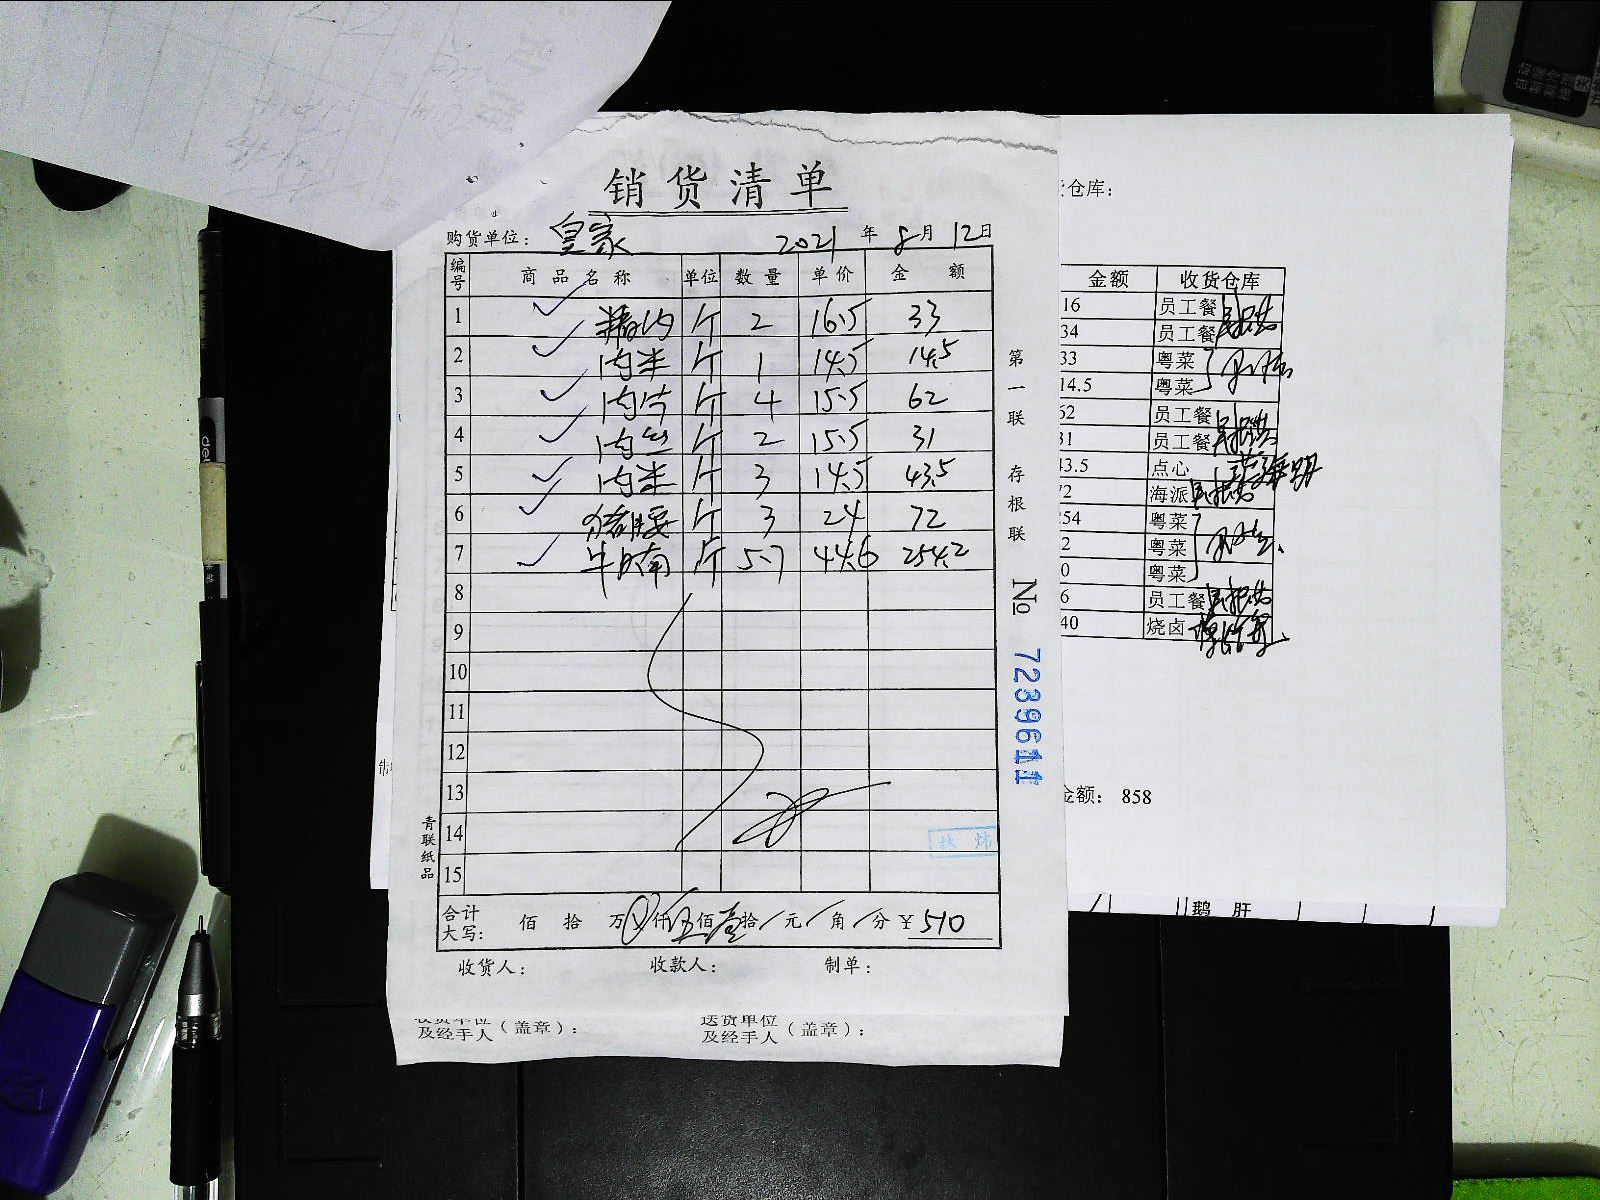 销货清单
购货单位: 皇家 2021 年 8 月 12 日
编号 商品名称 单位 数量 单价 金额
1 精肉 斤 2 16.5 33
2 肉米 斤 1 14.5 14.5
3 肉片 斤 4 15.5 62
4 肉丝 斤 2 15.5 31
5 肉米 斤 3 14.5 43.5
6 猪腰 斤 3 24 72
7 牛腩 斤 5.7 44.6 254.2
8
9
10
11
12
13
14
15
合计大写: 佰 拾 万 仟 五 佰 壹 拾 元 角 分 ¥ 510
收货人: 收款人: 制单:
第一联 存根联 № 7239611
青联纸品
及经手人 (盖章):
送货单位
及经手人 (盖章):
仓库:
金额 收货仓库
16 员工餐
34 员工餐
33 粤菜
14.5 粤菜
62 员工餐
31 员工餐
43.5 点心
72 海派
254 粤菜
2 粤菜
0 粤菜
6 员工餐
40 烧卤
金额: 858
鹅肝